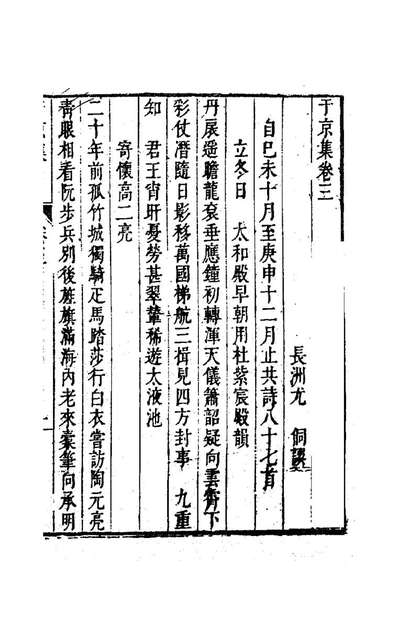 于京集卷三
長洲尤　侗譔
自巳未十月至庚申十二月止共詩八十七首
立冬日　太和殿早朝用杜紫宸殿韻
丹扆遥瞻龍衮垂應鐘初轉渾天儀簫韶疑向雲霄下
彩仗潛隨日影移萬國梯航三揖見四方封事　九重
知　君王宵旰憂勞甚翠輦稀遊太液池
寄懷高二亮
二十年前孤竹城獨騎疋馬踏莎行白衣嘗訪陶元亮
靑眼相看阮步兵別後旌旗滿海內老來橐筆向承明